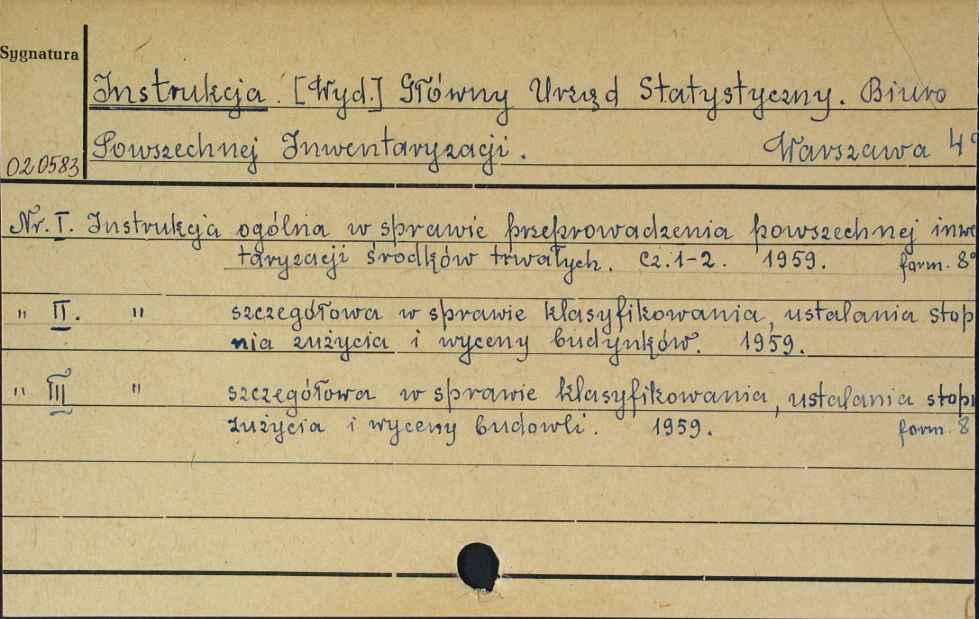 Sygnatura
Instrukcja. [Wyd.] Główny Urząd Statystyczny. Biuro
Powszechnej Inwentaryzacji. Warszawa 4°
020583
Nr. I. Instrukcja ogólna w sprawie przeprowadzenia powszechnej inwe
taryzacji środków trwałych. Cz. 1-2. 1959. form. 8°
" II. " szczegółowa w sprawie klasyfikowania, ustalania stop
nia zużycia i wyceny budynków. 1959.
" III " szczegółowa w sprawie klasyfikowania, ustalania stopn
zużycia i wyceny budowli. 1959. form. 8